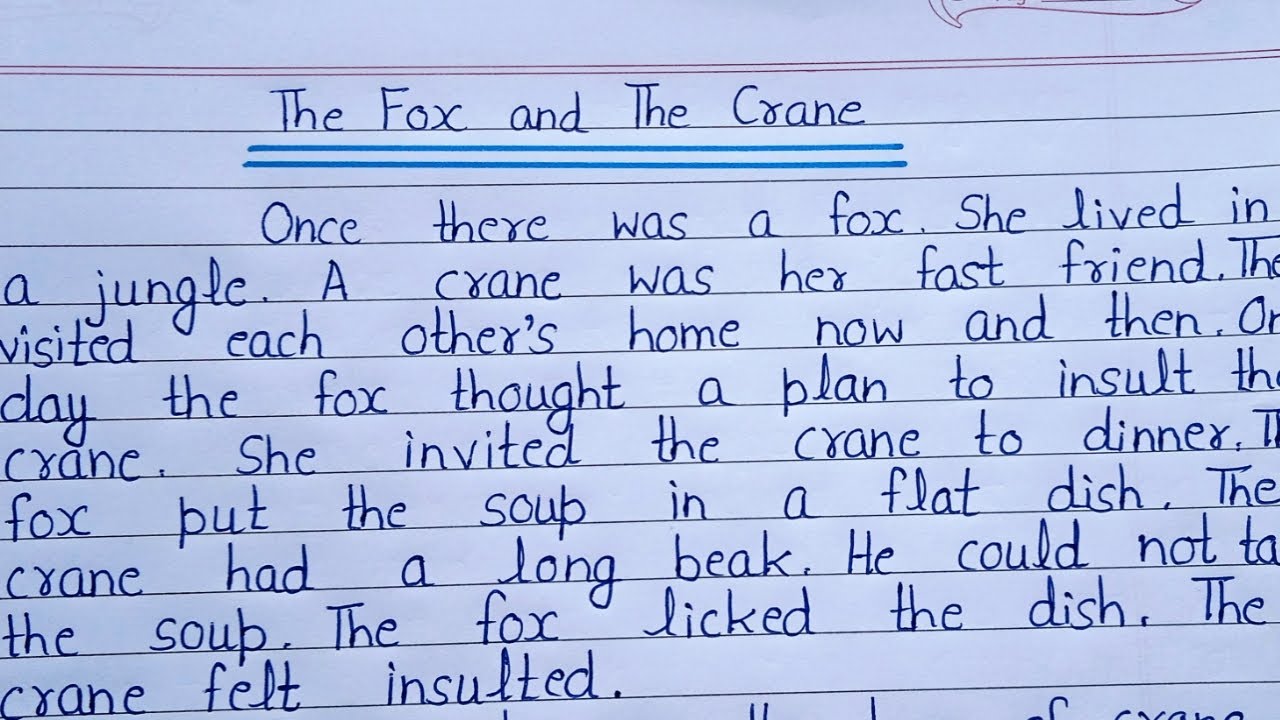 The Fox and The Crane
Once there was a fox. She lived in
a jungle. A crane was her fast friend. The
visited each other's home now and then. On
day the fox thought a plan to insult the
crane. She invited the crane to dinner. Th
fox put the soup in a flat dish. The
crane had a long beak. He could not ta
the soup. The fox licked the dish. The
crane felt insulted.
of crane